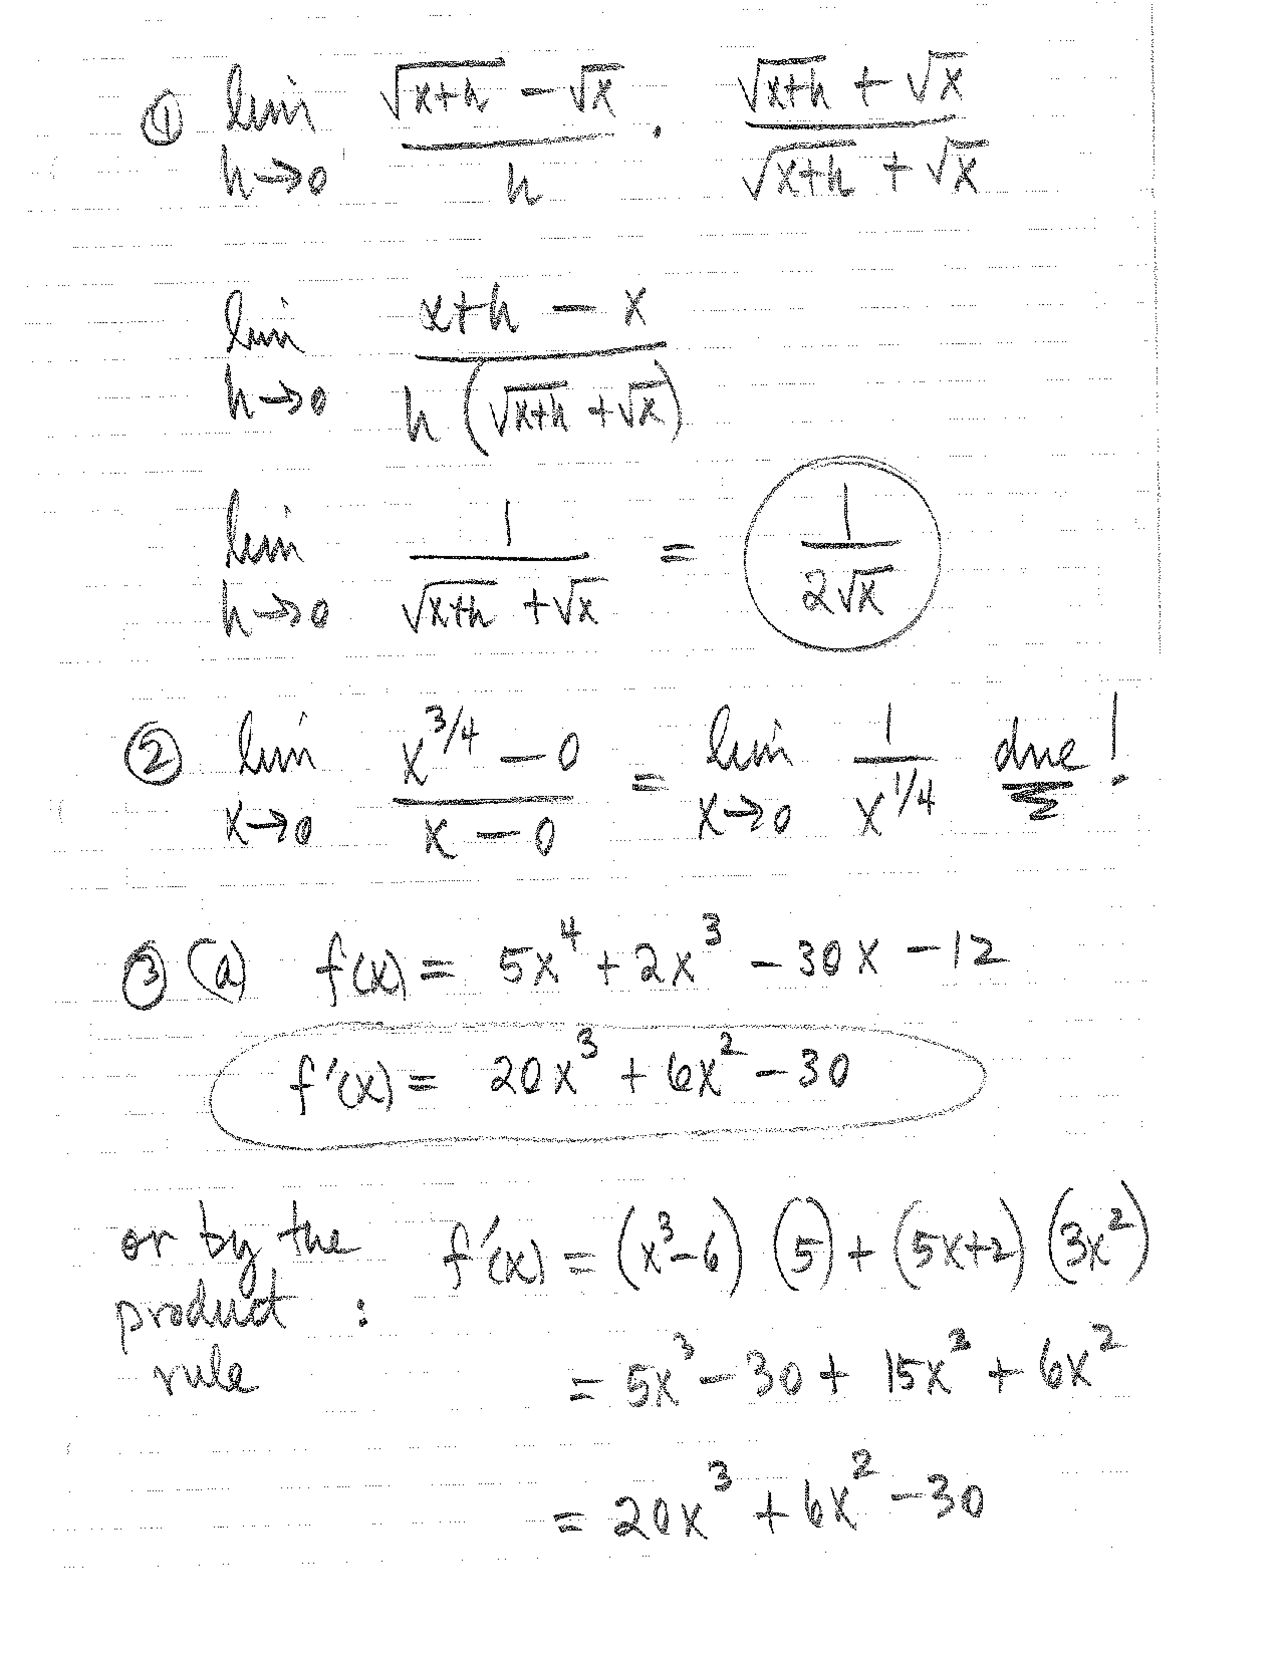 ① lim h→0 (√(x+h) − √x)/h · (√(x+h) + √x)/(√(x+h) + √x)
lim h→0 (x+h − x)/(h(√(x+h) + √x))
lim h→0 1/(√(x+h) + √x) = 1/(2√x)
② lim x→0 (x^(3/4) − 0)/(x − 0) = lim x→0 1/x^(1/4) dne!
③ (a) f(x) = 5x⁴ + 2x³ − 30x − 12
f'(x) = 20x³ + 6x² − 30
or by the product rule : f'(x) = (x³−6) (5) + (5x+2) (3x²)
= 5x³ − 30 + 15x³ + 6x²
= 20x³ + 6x² − 30